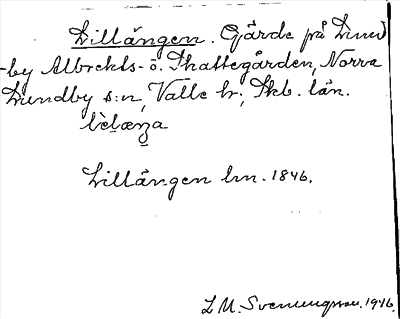 Lillängen. Gärde på Lund
-by Albrekts- o. Skattegården, Norra
Lundby s:n, Valle hr; Skb. län.
Lillängen lm. 1846.
L M. Svenungsson. 1946.